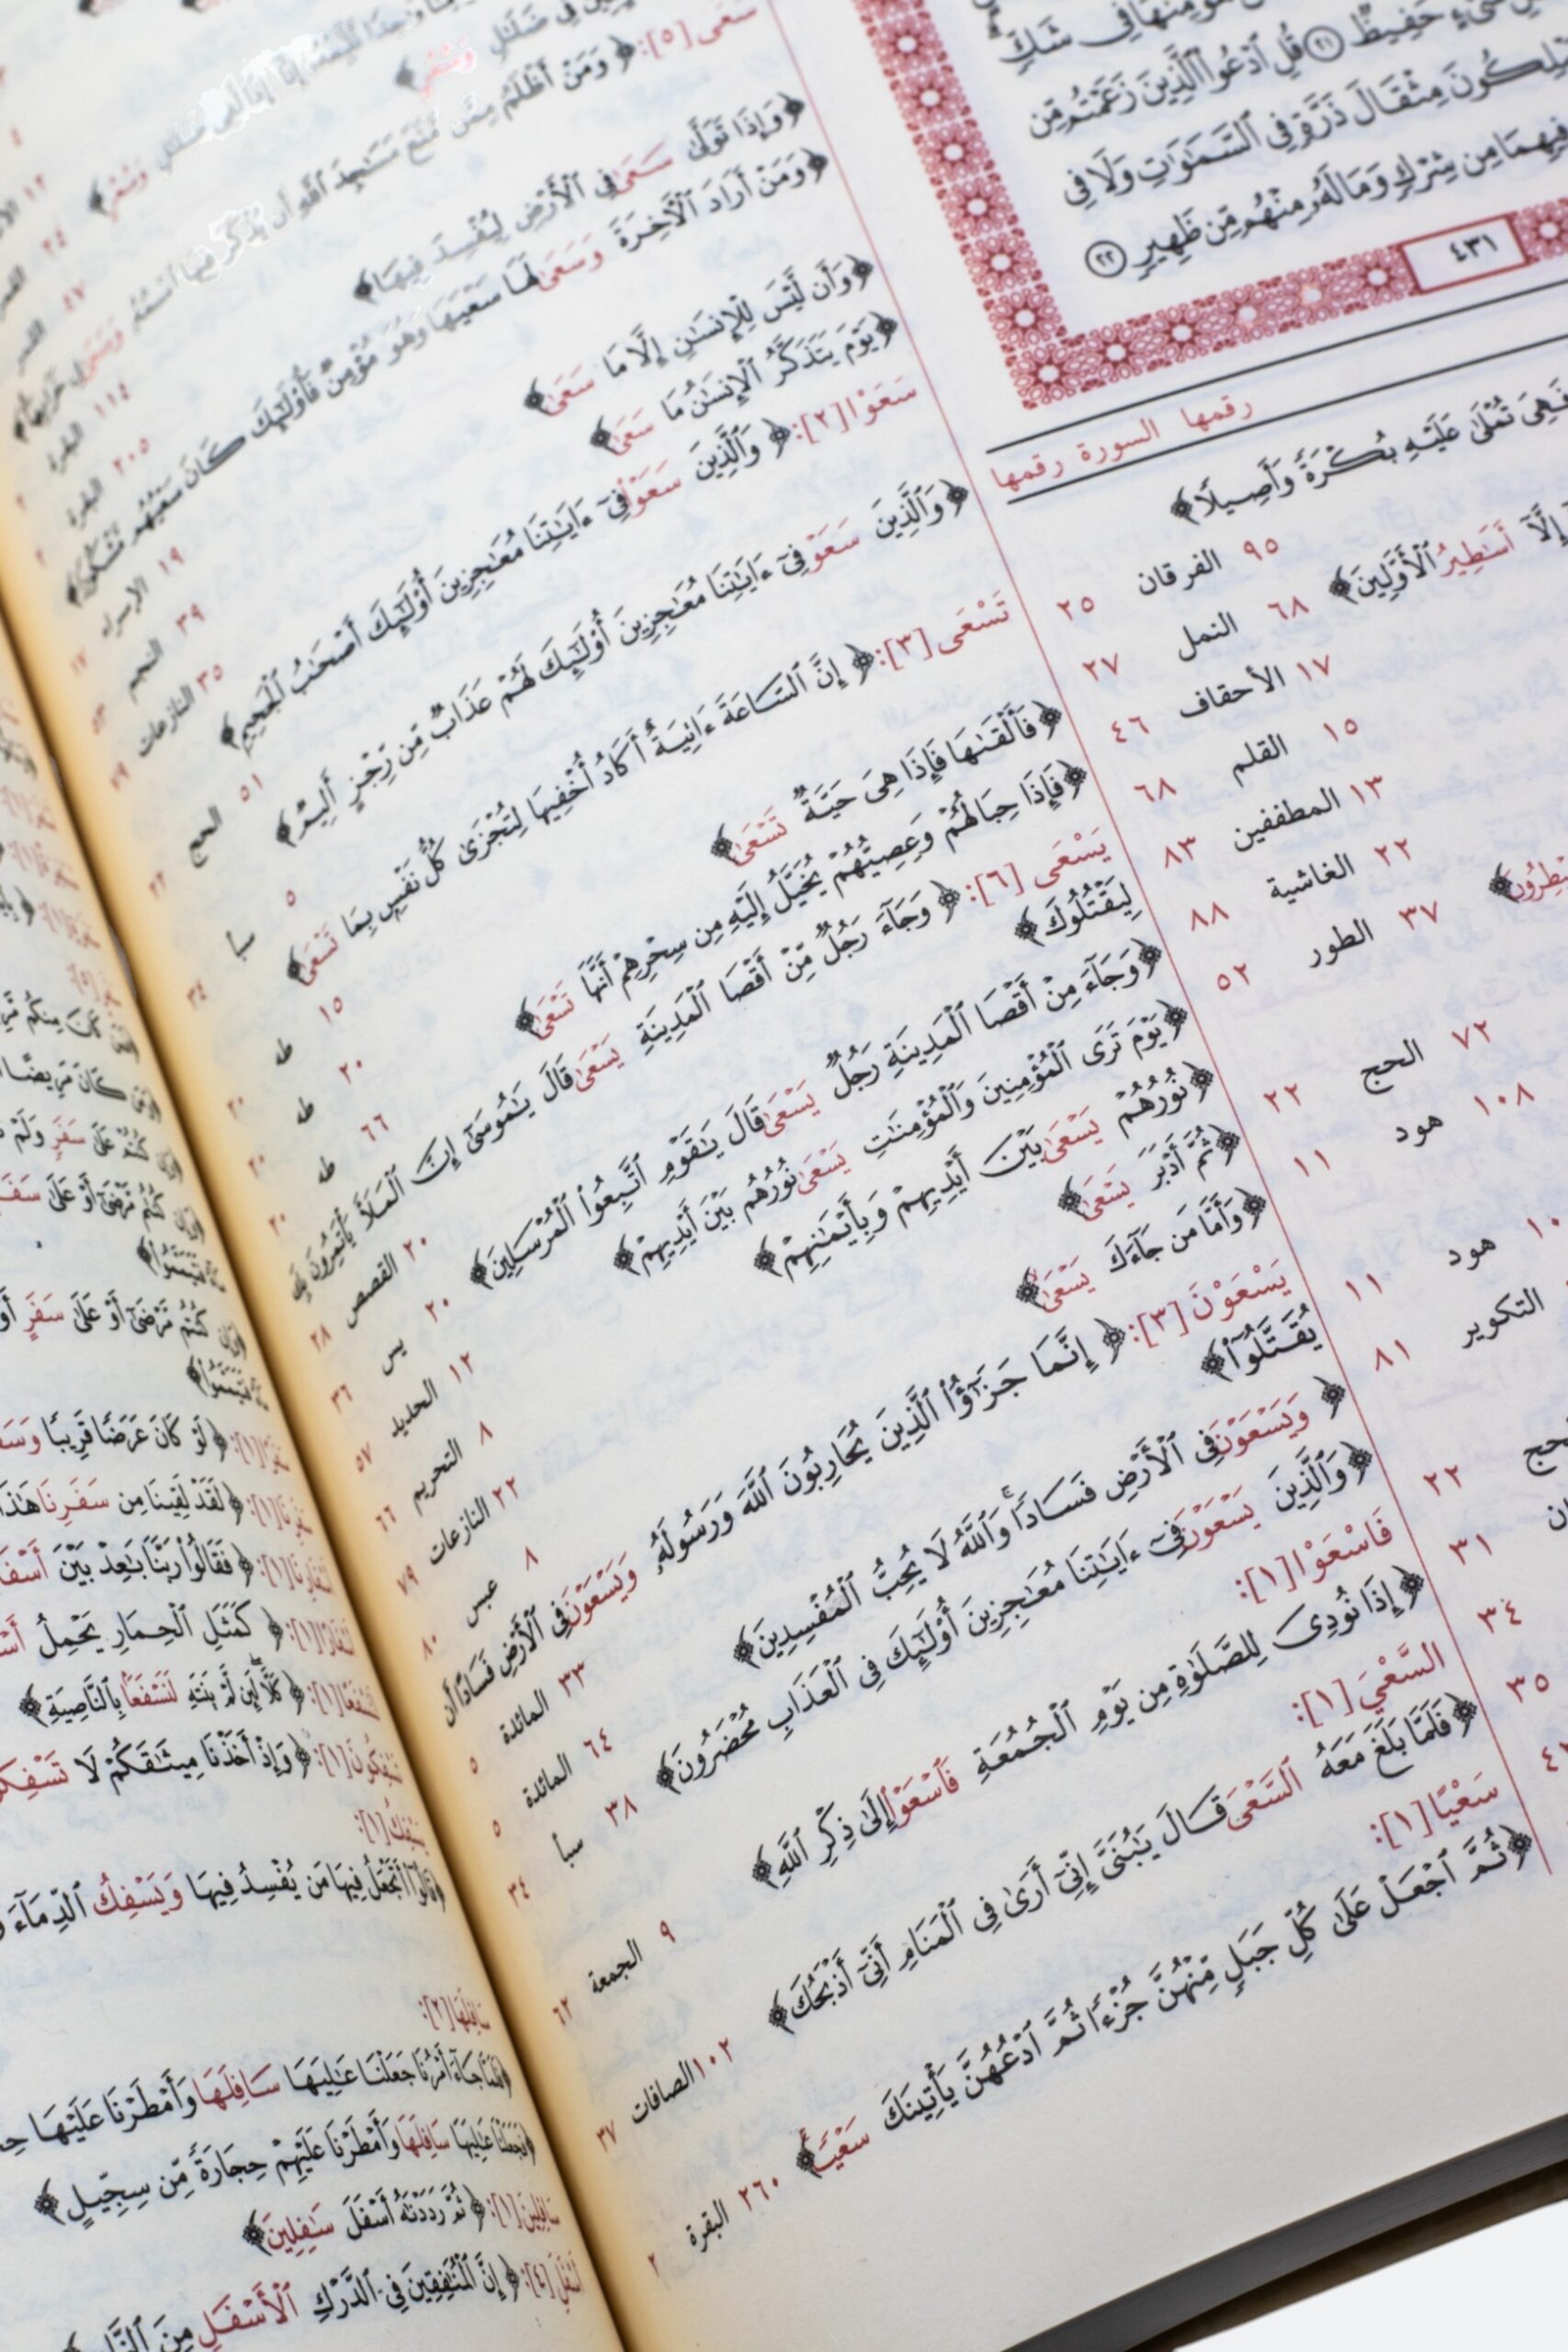 حَفِيظٌ ٢١ قُلِ ٱدْعُوا۟ ٱلَّذِينَ زَعَمْتُم مِّن
مِثْقَالَ ذَرَّةٍ فِى ٱلسَّمَٰوَٰتِ وَلَا فِى
فِيهِمَا مِن شِرْكٍ وَمَا لَهُۥ مِنْهُم مِّن ظَهِيرٍ ٢٢
٤٣١
رقمها السورة رقمها
فَهِىَ تُمْلَىٰ عَلَيْهِ بُكْرَةً وَأَصِيلًا﴾
٢٥ الفرقان ٩٥
إِلَّآ أَسَٰطِيرُ ٱلْأَوَّلِينَ﴾ ٦٨ النمل ٢٧
١٧ الأحقاف ٤٦
١٥ القلم ٦٨
١٣ المطففين ٨٣
٢٢ الغاشية ٨٨
٣٧ الطور ٥٢
٧٢ الحج ٢٢
١٠٨ هود ١١
هود ١١
التكوير ٨١
٢٢
٣١
٣٤
٣٥
سَعَى [٥]: ﴿وَمَنْ أَظْلَمُ مِمَّن مَّنَعَ مَسَٰجِدَ ٱللَّهِ أَن يُذْكَرَ فِيهَا ٱسْمُهُۥ وَسَعَىٰ فِى خَرَابِهَآ﴾ ١١٤ البقرة ٢
﴿وَإِذَا تَوَلَّىٰ سَعَىٰ فِى ٱلْأَرْضِ لِيُفْسِدَ فِيهَا﴾ ٢٠٥ البقرة ٢
﴿وَمَنْ أَرَادَ ٱلْآخِرَةَ وَسَعَىٰ لَهَا سَعْيَهَا وَهُوَ مُؤْمِنٌ فَأُو۟لَٰٓئِكَ كَانَ سَعْيُهُم مَّشْكُورًا﴾ ١٩ الإسراء ١٧
﴿وَأَن لَّيْسَ لِلْإِنسَٰنِ إِلَّا مَا سَعَىٰ﴾ ٣٩ النجم ٥٣
﴿يَوْمَ يَتَذَكَّرُ ٱلْإِنسَٰنُ مَا سَعَىٰ﴾ ٣٥ النازعات ٧٩
سَعَوْا [٢]: ﴿وَٱلَّذِينَ سَعَوْا۟ فِىٓ ءَايَٰتِنَا مُعَٰجِزِينَ أُو۟لَٰٓئِكَ أَصْحَٰبُ ٱلْجَحِيمِ﴾ ٥١ الحج ٢٢
﴿وَٱلَّذِينَ سَعَوْ فِىٓ ءَايَٰتِنَا مُعَٰجِزِينَ أُو۟لَٰٓئِكَ لَهُمْ عَذَابٌ مِّن رِّجْزٍ أَلِيمٌ﴾ ٥ سبأ ٣٤
تَسْعَى [٣]: ﴿إِنَّ ٱلسَّاعَةَ ءَاتِيَةٌ أَكَادُ أُخْفِيهَا لِتُجْزَىٰ كُلُّ نَفْسٍۭ بِمَا تَسْعَىٰ﴾ ١٥ طه ٢٠
﴿فَأَلْقَىٰهَا فَإِذَا هِىَ حَيَّةٌ تَسْعَىٰ﴾ ٢٠ طه ٢٠
﴿فَإِذَا حِبَالُهُمْ وَعِصِيُّهُمْ يُخَيَّلُ إِلَيْهِ مِن سِحْرِهِمْ أَنَّهَا تَسْعَىٰ﴾ ٦٦ طه ٢٠
يَسْعَى [٦]: ﴿وَجَآءَ رَجُلٌ مِّنْ أَقْصَا ٱلْمَدِينَةِ يَسْعَىٰ قَالَ يَٰمُوسَىٰٓ إِنَّ ٱلْمَلَأَ يَأْتَمِرُونَ بِكَ
لِيَقْتُلُوكَ﴾ ٢٠ القصص ٢٨
﴿وَجَآءَ مِنْ أَقْصَا ٱلْمَدِينَةِ رَجُلٌ يَسْعَىٰ قَالَ يَٰقَوْمِ ٱتَّبِعُوا۟ ٱلْمُرْسَلِينَ﴾ ٢٠ يس ٣٦
﴿يَوْمَ تَرَى ٱلْمُؤْمِنِينَ وَٱلْمُؤْمِنَٰتِ يَسْعَىٰ نُورُهُم بَيْنَ أَيْدِيهِمْ﴾ ١٢ الحديد ٥٧
﴿نُورُهُمْ يَسْعَىٰ بَيْنَ أَيْدِيهِمْ وَبِأَيْمَٰنِهِمْ﴾ ٨ التحريم ٦٦
﴿ثُمَّ أَدْبَرَ يَسْعَىٰ﴾ ٢٢ النازعات ٧٩
﴿وَأَمَّا مَن جَآءَكَ يَسْعَىٰ﴾ ٨ عبس ٨٠
يَسْعَوْنَ [٣]: ﴿إِنَّمَا جَزَٰٓؤُا۟ ٱلَّذِينَ يُحَارِبُونَ ٱللَّهَ وَرَسُولَهُۥ وَيَسْعَوْنَ فِى ٱلْأَرْضِ فَسَادًا أَن
يُقَتَّلُوٓا۟﴾ ٣٣ المائدة ٥
﴿وَيَسْعَوْنَ فِى ٱلْأَرْضِ فَسَادًا ۚ وَٱللَّهُ لَا يُحِبُّ ٱلْمُفْسِدِينَ﴾ ٦٤ المائدة ٥
﴿وَٱلَّذِينَ يَسْعَوْنَ فِىٓ ءَايَٰتِنَا مُعَٰجِزِينَ أُو۟لَٰٓئِكَ فِى ٱلْعَذَابِ مُحْضَرُونَ﴾ ٣٨ سبأ ٣٤
فَاسْعَوْا [١]:
﴿إِذَا نُودِىَ لِلصَّلَوٰةِ مِن يَوْمِ ٱلْجُمُعَةِ فَٱسْعَوْا۟ إِلَىٰ ذِكْرِ ٱللَّهِ﴾ ٩ الجمعة ٦٢
السَّعْيَ [١]:
﴿فَلَمَّا بَلَغَ مَعَهُ ٱلسَّعْىَ قَالَ يَٰبُنَىَّ إِنِّىٓ أَرَىٰ فِى ٱلْمَنَامِ أَنِّىٓ أَذْبَحُكَ﴾ ١٠٢ الصافات ٣٧
سَعْيًا [١]:
﴿ثُمَّ ٱجْعَلْ عَلَىٰ كُلِّ جَبَلٍ مِّنْهُنَّ جُزْءًا ثُمَّ ٱدْعُهُنَّ يَأْتِينَكَ سَعْيًا﴾ ٢٦٠ البقرة ٢
﴿لَوْ كَانَ عَرَضًا قَرِيبًا
﴿لَقَدْ لَقِينَا مِن سَفَرِنَا هَٰذَا
﴿فَقَالُوا۟ رَبَّنَا بَٰعِدْ بَيْنَ
﴿كَمَثَلِ ٱلْحِمَارِ يَحْمِلُ
﴿كَلَّا لَئِن لَّمْ يَنتَهِ لَنَسْفَعًۢا بِٱلنَّاصِيَةِ﴾
﴿وَإِذْ أَخَذْنَا مِيثَٰقَكُمْ لَا
أَتَجْعَلُ فِيهَا مَن يُفْسِدُ فِيهَا وَيَسْفِكُ ٱلدِّمَآءَ
جَآءَ أَمْرُنَا جَعَلْنَا عَٰلِيَهَا سَافِلَهَا وَأَمْطَرْنَا عَلَيْهَا
عَٰلِيَهَا سَافِلَهَا وَأَمْطَرْنَا عَلَيْهِمْ حِجَارَةً مِّن سِجِّيلٍ﴾
﴿ثُمَّ رَدَدْنَٰهُ أَسْفَلَ سَٰفِلِينَ﴾
﴿إِنَّ ٱلْمُنَٰفِقِينَ فِى ٱلدَّرْكِ ٱلْأَسْفَلِ مِنَ